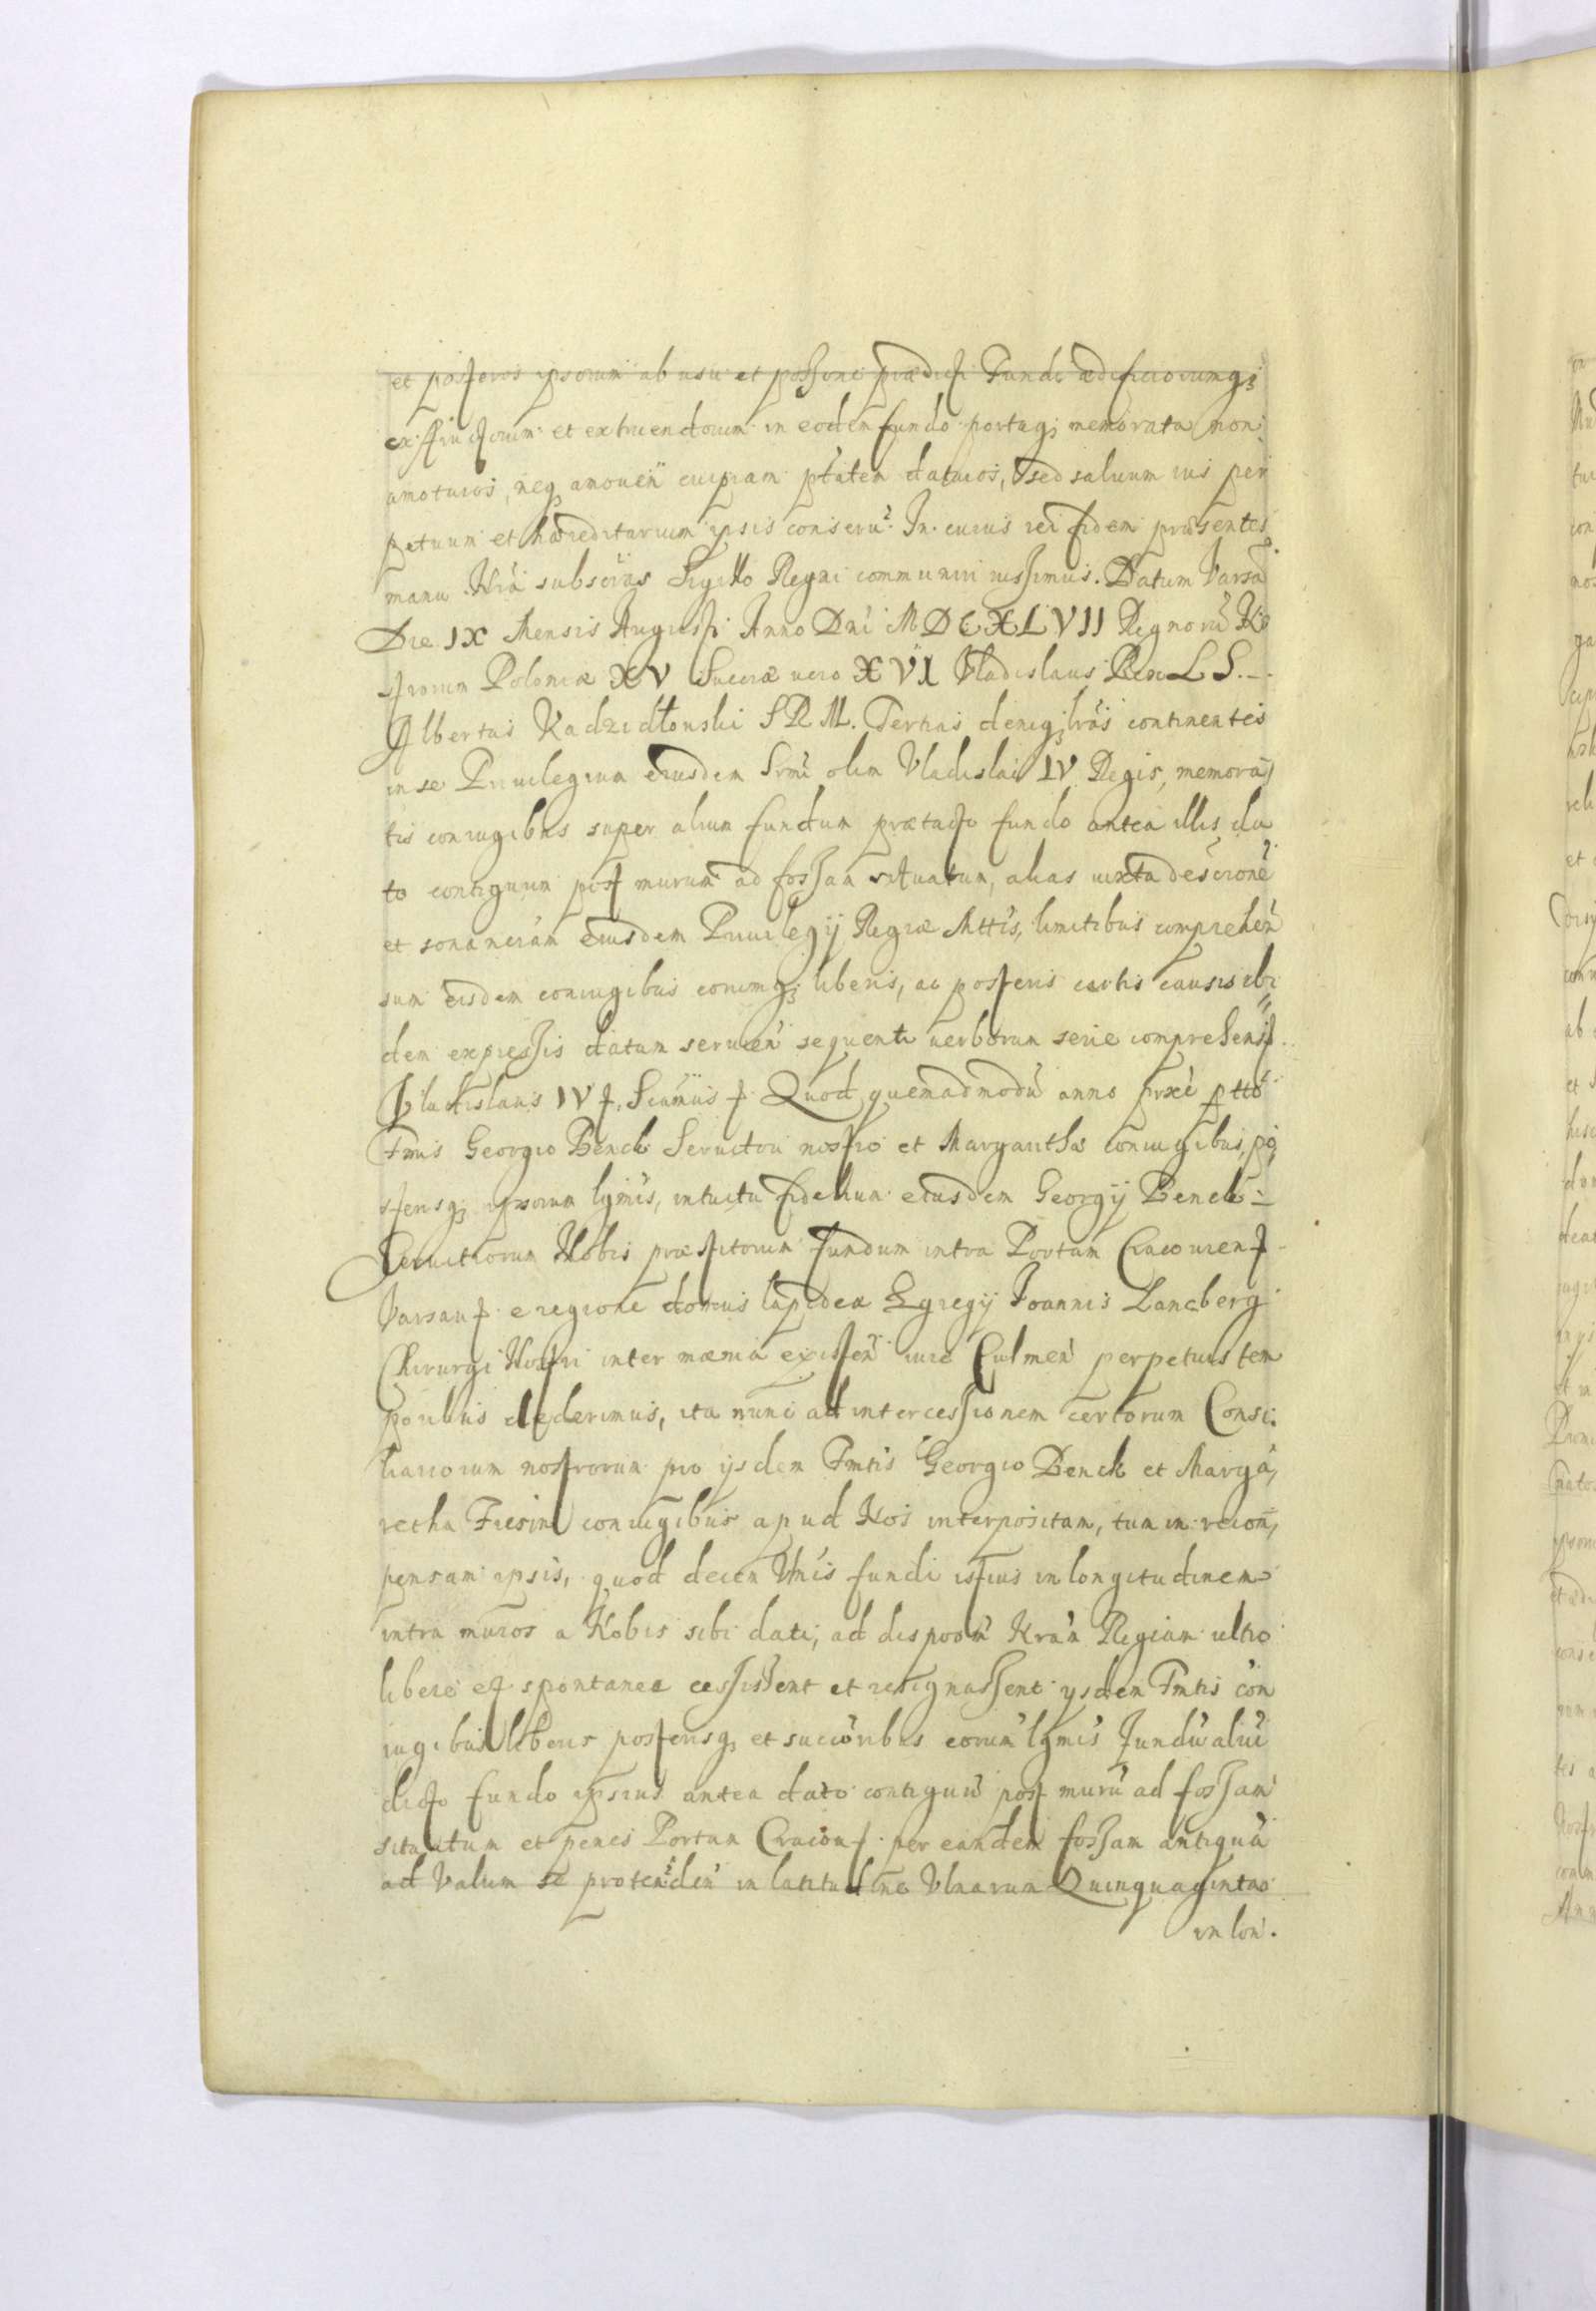 et posteros ipsorum ab usu et possione prædicti Fundi ædificiorumq;
extructorum et extruendorum in eodem fundo portaq; memorata non
amoturos, neq amouen cuipiam ptatem daturos, sed saluum ius per
petuum et hæreditarium ipsis conseru. In cuius rei fidem præsentes
manu Nrā subscras Sigillo Regni communiri iussimus. Datum Varsa
Die IX Mensis Augusti Anno Dni MDCXLVII Regnorū No
strorum Poloniæ XV Sueciæ uero XVI Vladislaus Rex L S.
Albertus Kadzidłonski S R M. Tertias deniq; lrás continentes
in se Priuilegium eiusdem Srmi olim Vladislai IV Regis, memora
tis coniugibus super alium fundum prætacto fundo antea illis da
to contiguum post murum ad fossam situatum, alias iuxta descrionē
et sonanciam eiusdem Priuilegij Regiæ Mttis, limitibus comprehen
sum eisdem coniugibus eorumq; liberis, ac posteris certis causis ibi
dem expressis datum seruien sequenti uerborum serie comprehens.
Vladislaus IV Scimus Quod quemadmodū anno prxē ptto
Fmis Georgio Benck Seruitori nostro et Margaritha coniugibus, po
sterisq; ipsorum lgmis, intuitu fidelium eiusdem Georgij Benck
Seruitiorum Nobis præstitorum fundum intra Portam Cracouien
Varsau e regione domus lapideæ Egregij Joannis Lancberg
Chirurgi Nostri inter mænia existen iure Culmen perpetuis tem
poribus dederimus, ita nunc ad intercessionem certorum Consi
liariorum nostrorum pro ijsdem Fmtis Georgio Benck et Marga
retha Fresin coniugibus apud Nos interpositam, tum in recom
pensam ipsis, quod decem Vnis fundi istius in longitudinem
intra muros a Nobis sibi dati, ad disponē Nram Regiam ultro
libere et spontanee cessissent et resignassent ijsdem Fmtis con
iugibus liberis posterisq; et succoribus eorum lgmis fundū aliū
dicto fundo ipsius antea dato contiguū post murū ad fossam
situatum et penes Portam Cracou per eandem fossam antiquā
ad Valum se protenden in latitudine Vlnarum Quinquaginta
in lon.